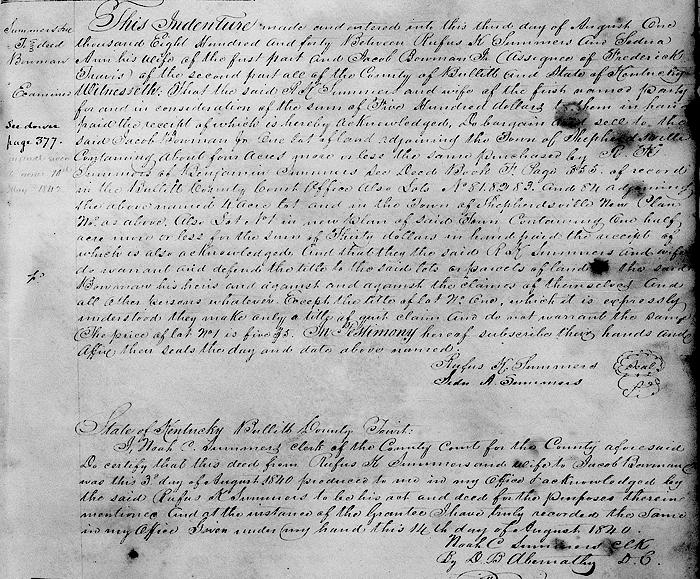 Summers &c
To } deed
Bowman
Examined
See dower
page 377.
This Indenture made and entered into this third day of August One
thousand Eight Hundred and forty Between Rufus K Summers And Sedna
Ann his wife of the first part And Jacob Bowman Jr (Assignee of Frederick
Travis) of the second part all of the County of Bullitt and State of Kentucky
Witnesseth. That the said R K Summers and wife of the first named party
for and in consideration of the sum of Five Hundred dollars to them in hand
paid the receipt of which is hereby Acknowledged, Do bargain and sell to the
said Jacob Bowman Jr One lot of land adjoining the Town of Shepherdsville
Containing about four Acres more or less the same purchased by R. K
Summers of Benjamin Summers see Deed Book F. Page 355. of record
in the Bullitt County Court Office Also Lots No 81.82 83. And 84 adjoining
the above named 4 acre lot and in the Town of Shepherdsville New Plan
No. as above. Also Lot No 1 in new plan of said Town. Containing One half
acre more or less for the sum of Thirty dollars in hand paid the receipt of
which is also acknowledged. And that they the said R K Summers and wife
do warrant and defend the title to the said lots or parcels of land to the said
Bowman his heirs and against and against the claims of themselves And
all other persons whatever. Except the title of lot No. One, which it is expressly
understood they make only a title of quit claim And do not warrant the same
The price of lot No 1 is five $5. In Testimony hereof subscribe their hands and
Affix their seals the day and date above named.
Rufus K. Summers Seal
Sedn A. Summers
State of Kentucky Bullitt County Towit:
I, Noah C. Summers clerk of the County Court for the County aforesaid
Do certify that this deed from Rufus K Summers and wife to Jacob Bowman
was this 3d day of August 1840 produced to me in my Office & acknowledged by
the said Rufus K Summers to be his act and deed for the purposes therein
mentioned And at the instance of the Grantee I have truly recorded the same
in my Office Given under my hand this 14th day of August 1840.
Noah C Summers clk
By D. B Abernathy D. C.